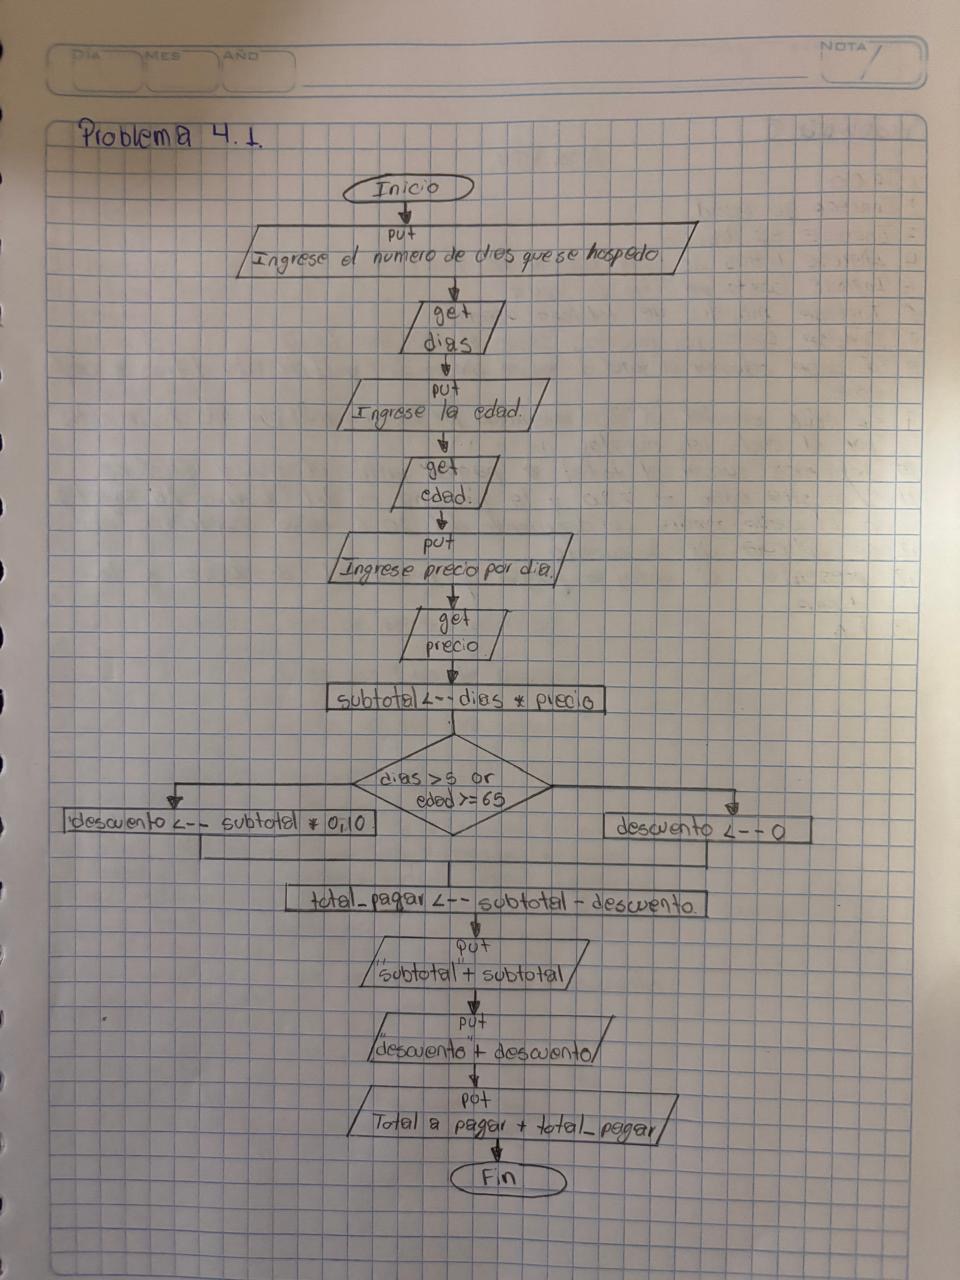 DÍA MES AÑO NOTA
Problema 4.1.
Inicio
put
Ingrese el numero de dies que se hospedo
get
dias
put
Ingrese la edad.
get
edad.
put
Ingrese precio por dia.
get
precio
subtotal <-- dias * precio
dias >5 or
edad >= 65
descuento <-- subtotal * 0,10
descuento <-- 0
total_pagar <-- subtotal - descuento.
put
"subtotal" + subtotal
put
"descuento" + descuento
put
Total a pagar + total_pagar
Fin